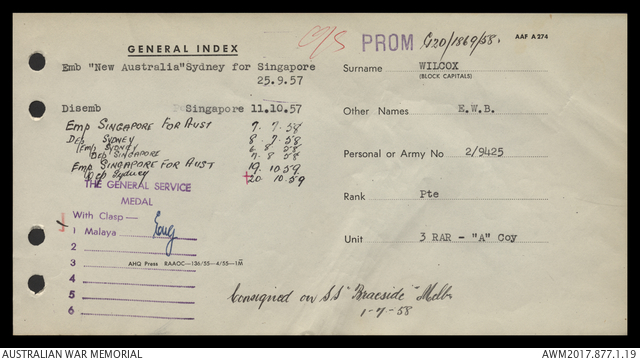 GENERAL INDEX
Emb "New Australia"Sydney for Singapore
25.9.57
Disemb Singapore 11.10.57
Emp SINGAPORE FOR AUST 7. 7. 58
Deb SYDNEY 8. 7. 58
Emp SYDNEY 6. 8 58
Deb SINGAPORE 7. 8 58
Emp SINGAPORE FOR AUST 19. 10.59
Deb Sydney 20. 10.59
THE GENERAL SERVICE
MEDAL
With Clasp —
1 Malaya
2
3
4
5
6
AHQ Press RAAOC—136/55—4/55—1M
PROM G20/1869/58.
AAF A 274
Surname WILCOX
(BLOCK CAPITALS)
Other Names E.W.B.
Personal or Army No 2/9425
Rank Pte
Unit 3 RAR - "A" Coy
Consigned on S.S "Braeside" Melb
1-7-58
AUSTRALIAN WAR MEMORIAL
AWM2017.877.1.19